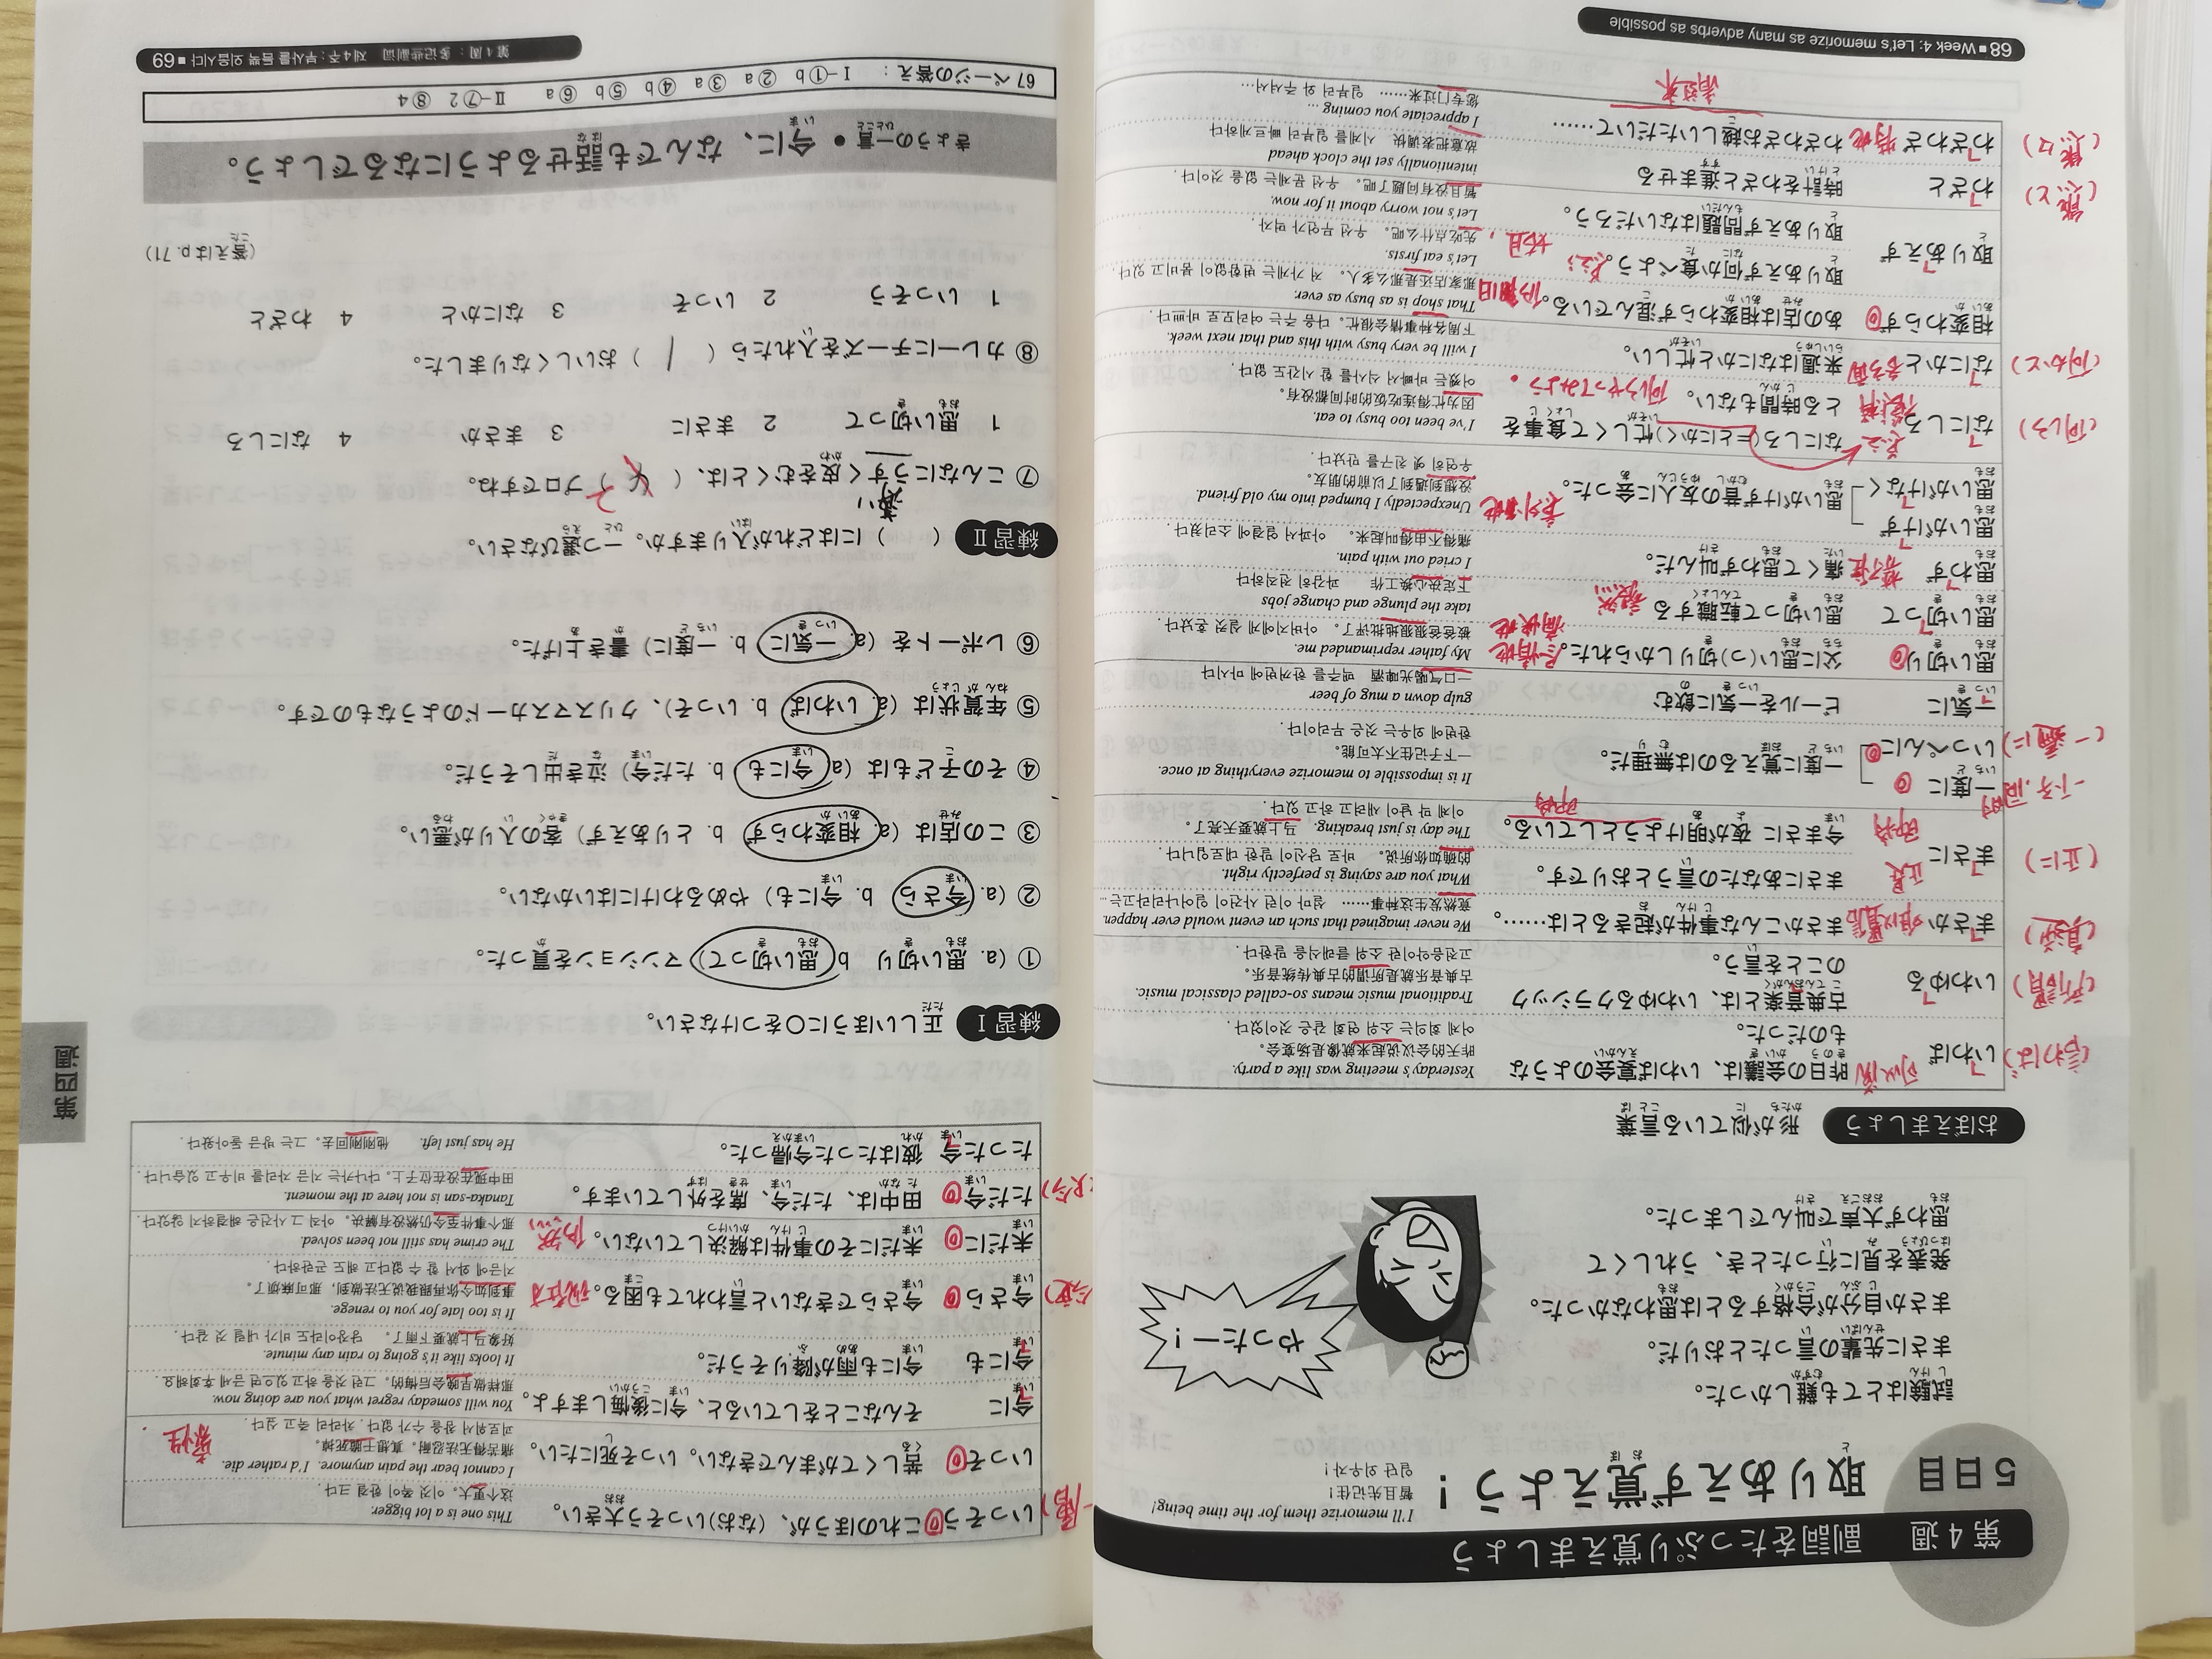 第4週 副詞をたっぷり覚えましょう
5日目 取りあえず覚えよう！
I'll memorize them for the time being!
暂且先记住！
일단 외우자！
試験はとても難しかった。
まさに先輩の言ったとおりだ。
まさか自分が合格するとは思わなかった。
発表を見に行ったとき、うれしくて
思わず大声で叫んでしまった。
やったー！
おぼえましょう 形が似ている言葉
(言わば) いわば 可以说 昨日の会議は、いわば宴会のような
ものだった。
Yesterday's meeting was like a party.
昨天的会议说起来就像是场宴会。
어제 회의는 소위 연회 같은 것이었다.
(所謂) いわゆる 古典音楽とは、いわゆるクラシック
のことを言う。
Traditional music means so-called classical music.
古典音乐就是所谓的古典传统音乐。
고전음악이란 소위 클래식을 말한다.
まさか 难以置信 まさかこんな事件が起きるとは……。
We never imagined that such an event would ever happen.
竟然发生这种事…… 설마 이런 사건이 일어나리라고는…
(正に) まさに 正是 まさにあなたの言うとおりです。
What you are saying is perfectly right.
的确如你所说。 바로 당신이 말한 대로입니다.
即将 今まさに 夜が明けようとしている。 即将
The day is just breaking. 马上就要天亮了。
이제 막 날이 새려고 하고 있다.
一度に
(一遍に) いっぺんに 一度に覚えるのは無理だ。
It is impossible to memorize everything at once.
一下子记住不太可能。
한번에 외우는 것은 무리이다.
一気に ビールを一気に飲む
gulp down a mug of beer
一口气喝光啤酒 맥주를 한꺼번에 마시다
思い切り 父に思い(っ)切りしかられた。 尽情地 痛快地
My father reprimanded me.
被爸爸狠狠地批评了。 아버지에게 실컷 혼났다.
思い切って 思い切って転職する 毅然
take the plunge and change jobs
下定决心换工作 과감히 전직하다
思わず 禁不住 痛くて思わず叫んだ。
I cried out with pain.
痛得不由得叫起来。 아파서 엉겁결에 소리쳤다
思いがけず
思いがけなく 思いがけず昔の友人に会った。 意外地
Unexpectedly I bumped into my old friend.
没想到遇到了以前的朋友。
우연히 옛 친구를 만났다.
(何しろ) なにしろ 总之 なにしろ(=とにかく)忙しくて食事を
とる時間もない。 何しろやってみよう。
I've been too busy to eat.
因为忙得连吃饭的时间都没有。
어쨌든 바빠 식사를 할 시간도 없다.
(何かと) なにかと 各方面 来週はなにかと忙しい。
I will be very busy with this and that next week.
下周各种事情会很忙。 다음 주는 여러모로 바쁘다.
相変わらず あの店は相変わらず混んでいる。
That shop is as busy as ever.
那家店还是那么多人。 저 가게는 변함없이 붐비고 있다.
取りあえず 取りあえず何か食べよう。 总之，姑且
Let's eat firsts.
先吃点什么吧。 우선 무언가 먹자.
取りあえず問題はないだろう。
Let's not worry about it for now.
暂且没有问题了吧。 우선 문제는 없을 것이다.
(態と) わざと 時計をわざと進ませる
intentionally set the clock ahead
故意把表调快 시계를 일부러 빠르게하다
(態々) わざわざ 特地 わざわざお越しいただいて……
I appreciate you coming …
您专门过来…… 일부러 와 주셔서…
68 ■ Week 4: Let's memorize as many adverbs as possible
いっそう これのほうが、(なお)いっそう大きい。
This one is a lot bigger.
这个更大。 이것 쪽이 한결 크다.
いっそ 苦しくてがまんできない。いっそ死にたい。
I cannot bear the pain anymore. I'd rather die.
痛苦得无法忍耐。真想干脆死掉。 索性
괴로워서 참을 수가 없다. 차라리 죽고 싶다.
今に そんなことをしていると、今に後悔しますよ。
You will someday regret what you are doing now.
那样做早晚会后悔的。 그런 것을 하고 있으면 곧 후회해요.
今にも 今にも雨が降りそうだ。
It looks like it's going to rain any minute.
好象马上就要下雨了。 당장이라도 비가 내릴 것 같다.
今さら 今さらできないと言われても困る。
It is too late for you to renege.
事到如今你再跟我说无法做到，那可麻烦了。
지금에 와서 할 수 없다고 해도 곤란하다.
未だに 未だにその事件は解決していない。 仍然
The crime has still not been solved.
那个事件至今仍然没有解决。 아직 그 사건은 해결하지 않았다.
(只今) ただ今 田中は、ただ今、席を外しています。
Tanaka-san is not here at the moment.
田中现在没在位子上。 다나카는 지금 자리를 비우고 있습니다.
たった今 彼はたった今帰った。
He has just left. 他刚刚回去。 그는 방금 돌아왔다.
第四週
練習Ⅰ 正しいほうに○をつけなさい。
① (a. 思い切り b 思い切って) マンションを買った。
② (a. 今さら b. 今にも) やめるわけにはいかない。
③ この店は (a. 相変わらず b. とりあえず) 客の入りが悪い。
④ その子どもは (a 今にも b. ただ今) 泣き出しそうだ。
⑤ 年賀状は (a いわば b. いっそ)、クリスマスカードのようなものです。
⑥ レポートを (a. 一気に b. 一度に) 書き上げた。
練習Ⅱ ( ) にはどれが入りますか。一つ選びなさい。
⑦ こんなにうすく皮をむくとは、( 2 ) プロですね。
薄い
1 思い切って 2 まさに 3 まさか 4 なにしろ
⑧ カレーにチーズを入れたら ( 1 ) おいしくなりました。
1 いっそう 2 いっそ 3 なにかと 4 わざと
(答えは p. 71)
きょうの一言 ● 今に、なんでも話せるようになるでしょう。
67 ページの答え： Ⅰ-①b ②a ③a ④b ⑤b ⑥a Ⅱ-⑦2 ⑧4
第4周：多记些副词 제4주：부사를 듬뿍 외웁시다 ■ 69